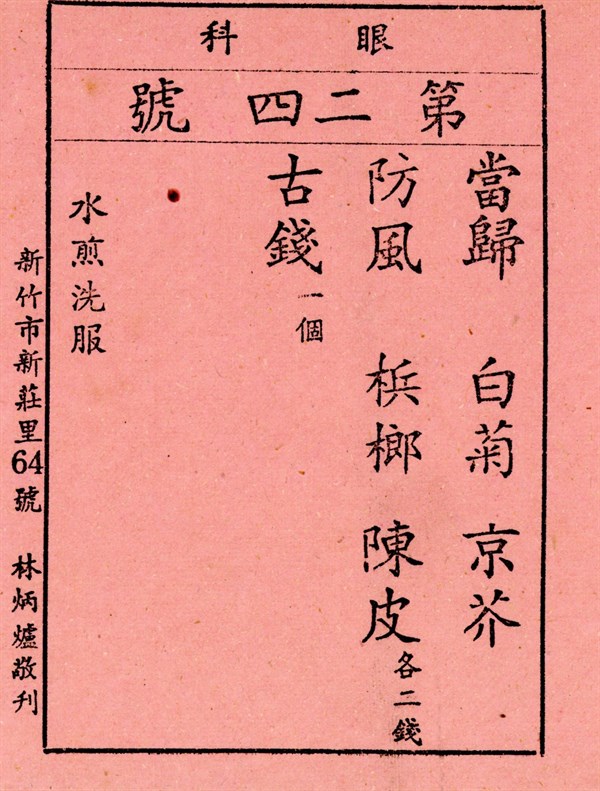 眼科
第二四號
當歸 白菊 京芥
防風 梹榔 陳皮 各二錢
古錢 一個
水煎洗服
新竹市新莊里64號 林炳爐敬刊